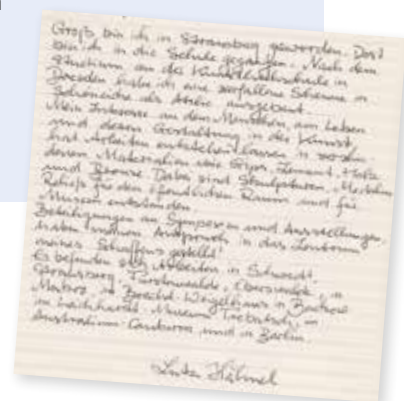 Groß bin ich in Strausberg geworden. Dort
bin ich in die Schule gegangen. Nach dem
Studium an der Kunsthochschule in
Dresden habe ich eine verfallene Scheune in
Schöneiche als Atelier ausgebaut.
Mein Interesse an dem Menschen, am Leben
und deren Gestaltung in der Kunst
hat Arbeiten entstehen lassen in
denen Materialien wie Gips, Zement, Holz
und Bronze Dabei sind Skulpturen, Medaillen
Reliefs für den öffentlichen Raum und für
Museen entstanden.
Beteiligungen an Symposien und Ausstellungen
haben meinen Anspruch in das Zentrum
meines Schaffens gestellt.
Es befinden sich Arbeiten in Schwedt,
Strausberg, Fürstenwalde, Eberswalde, in
in Brecht-Weigelhaus in Buckow
im Museum in
Australien Canberra und in Berlin.
Hähnel